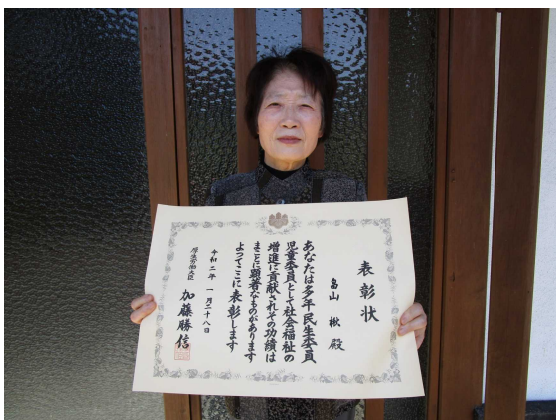 表彰状
畠山 楸 殿
あなたは多年民生委員
児童委員として社会福祉の
増進に貢献されその功績は
まことに顕著なものがあります
よってここに表彰します
令和二年 一月二十八日
厚生労働大臣
加藤勝信